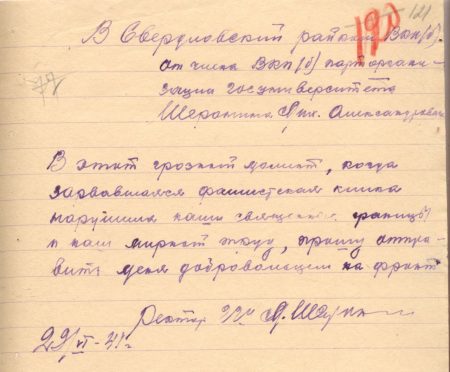 120 121
72
В Свердловский райком ВКП(б).
от члена ВКП(б) парторгани-
зации госуниверситета
Александровича
В этот грозный момент, когда
зарвавшаяся фашистская клика
нарушила наши священные границы
и наш мирный труд, прошу отпра-
вить меня добровольцем на фронт
Ректор
22/VI-41г.